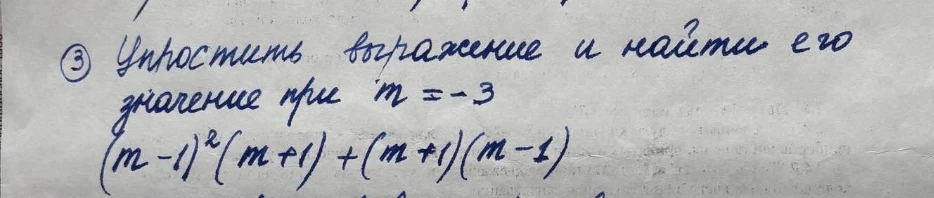 ③ Упростить выражение и найти его
значение при m = -3
(m-1)²(m+1)+(m+1)(m-1)